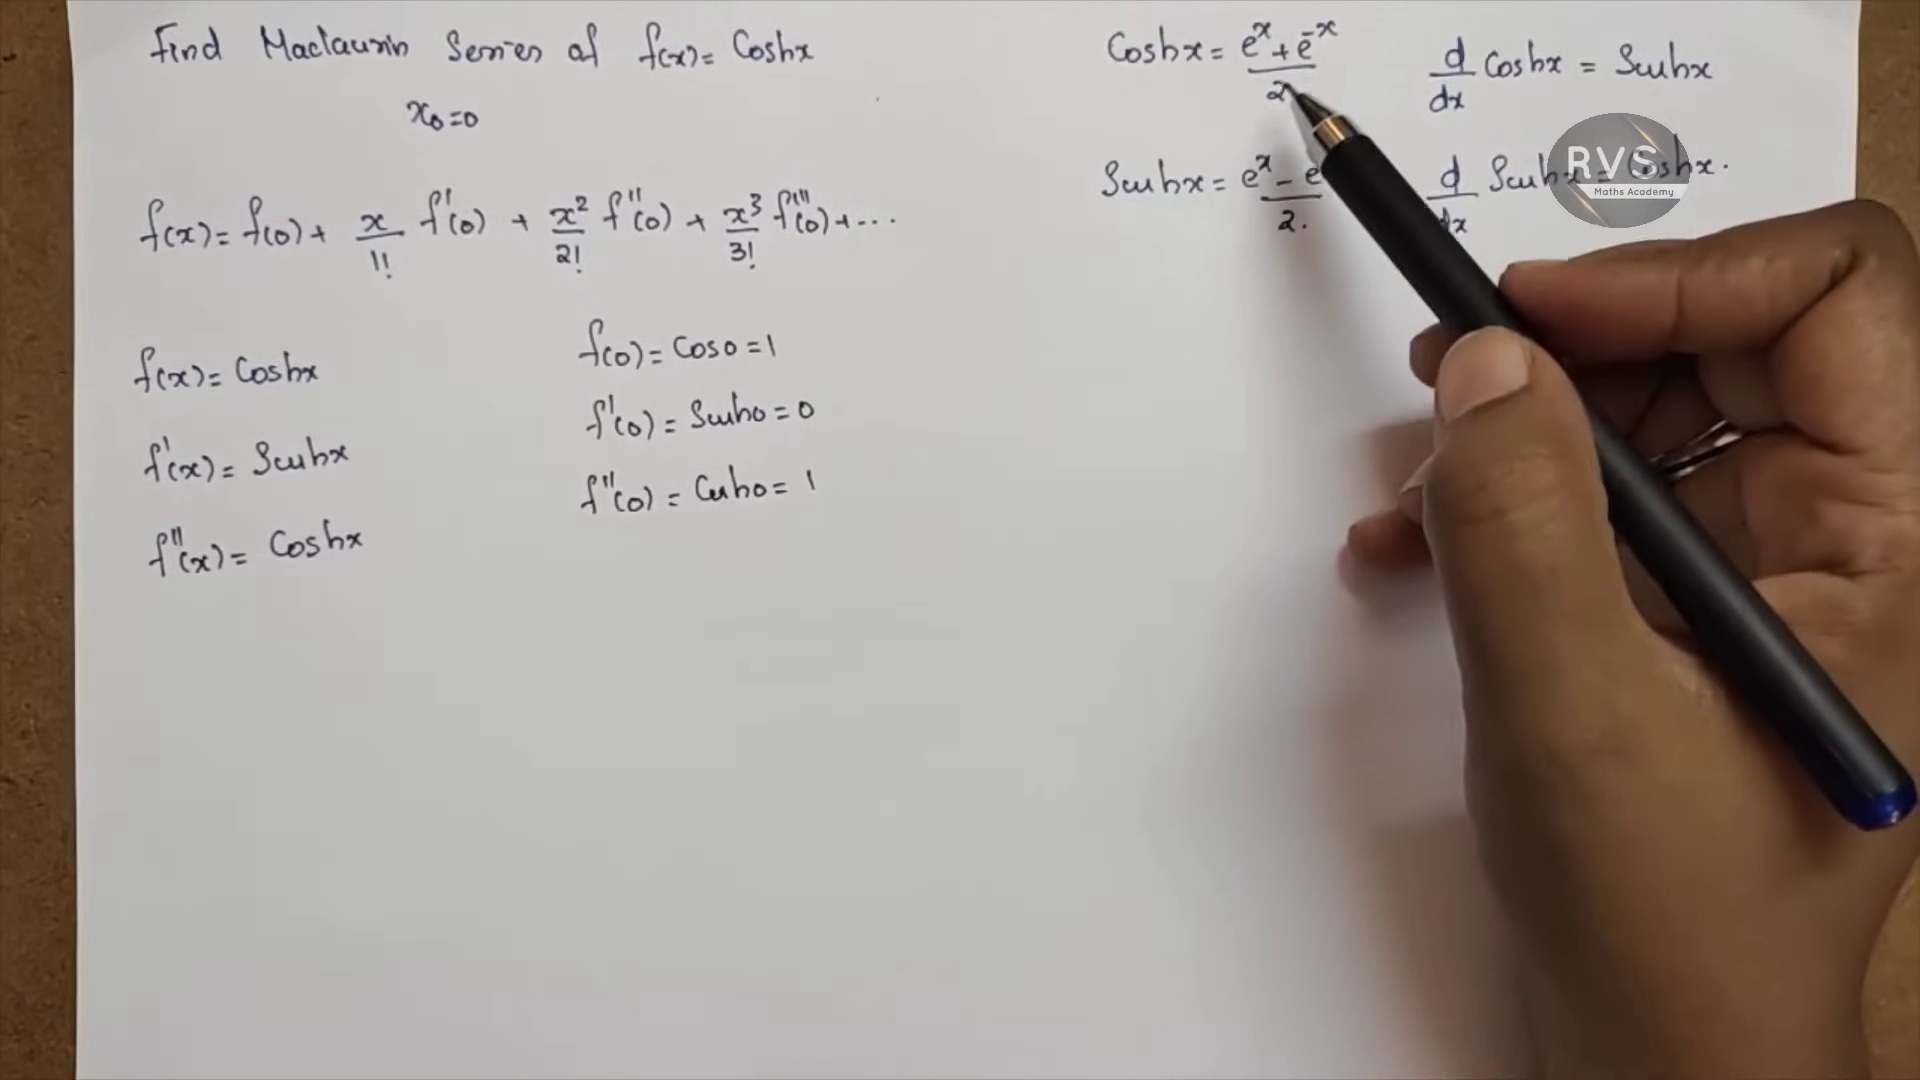 Find Maclaurin Series of f(x) = Coshx
x₀=0
f(x) = f(0) + x/1! f'(0) + x²/2! f''(0) + x³/3! f'''(0) + ...
f(x) = Coshx
f'(x) = Sinhx
f''(x) = Coshx
f(0) = Cos0 = 1
f'(0) = Sinh0 = 0
f''(0) = Cosh0 = 1
Coshx = e^x + e^-x / 2
Sinhx = e^x - e / 2.
d/dx Coshx = Sinhx
d/dx Sinhx = Coshx.
RVS
Maths Academy